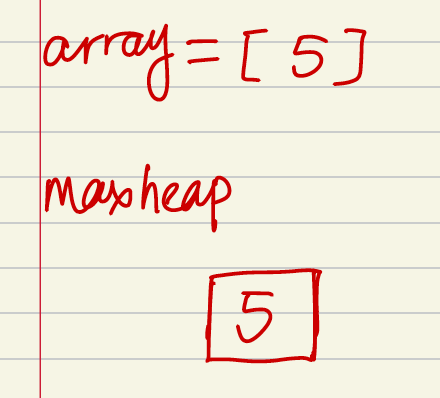 array = [ 5 ]
maxheap
5